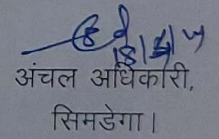 अंचल अधिकारी,
सिमडेगा।